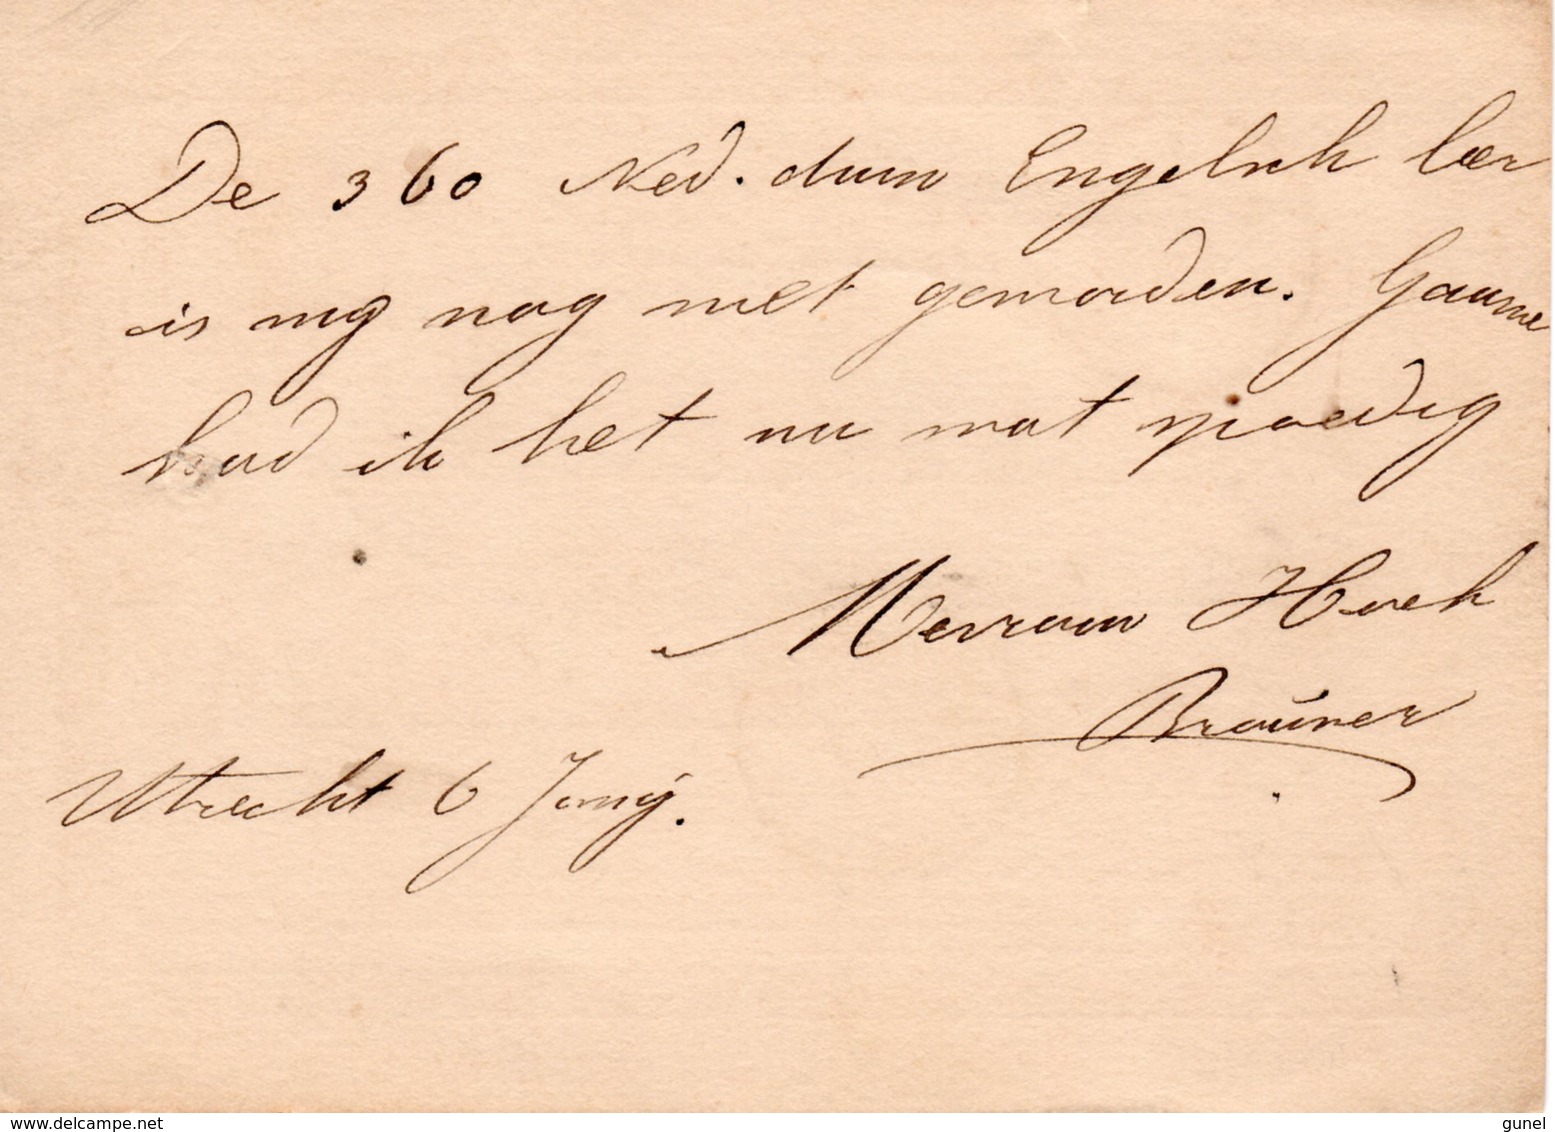 De 360 Ned. duim Engelsch leer
is mij nog niet geworden. Gaarne
had ik het nu wat spoedig
Mevrouw Hoek
Brouwer
Utrecht 6 Junij.
www.delcampe.net
gunel